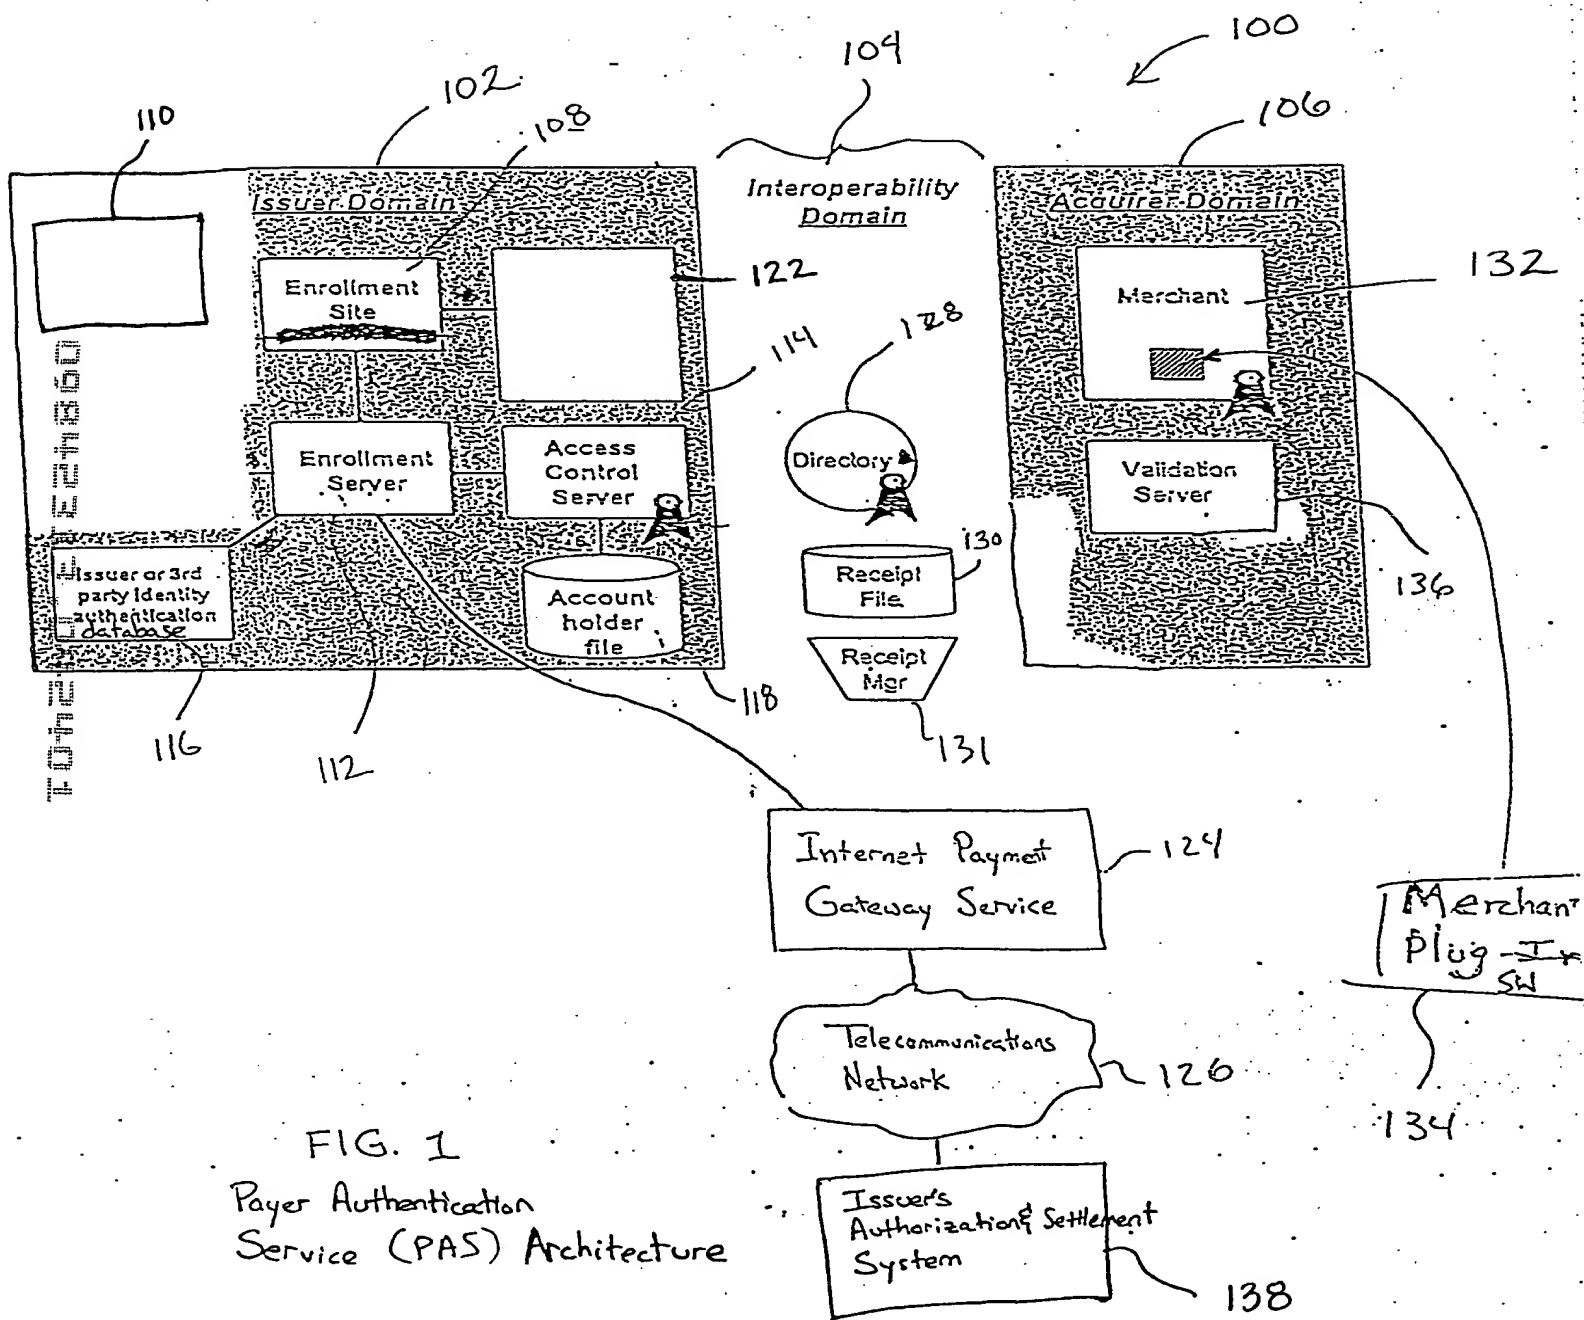 100
104
102
108
110
106
Issuer Domain
Interoperability
Domain
Acquirer Domain
Enrollment
Site
122
Merchant
132
114
128
Enrollment
Server
Access
Control
Server
Directory
Validation
Server
130
Receipt
File
136
Issuer or 3rd
party identity
authentication
database
Account
holder
file
Receipt
Mgr
118
116
112
131
Internet Payment
Gateway Service
124
Merchant
Plug-In
SW
134
Telecommunications
Network
126
FIG. 1
Payer Authentication
Service (PAS) Architecture
Issuer's
Authorization & Settlement
System
138